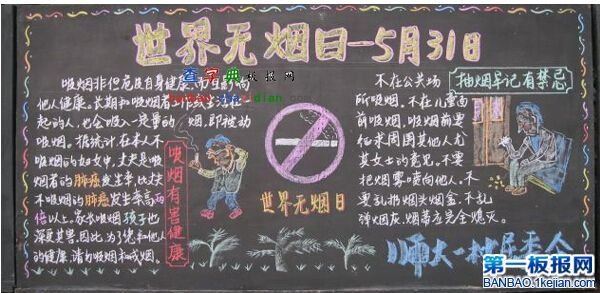 世界无烟日—5月31日
查字典板报网
吸烟非但危及自身健康,而且影响
他人健康。长期和吸烟者一
起的人,也会吸入一定量的烟,即被动
吸烟。据统计在本人不
吸烟的妇女中,丈夫是吸
烟者的肺癌发生率,比丈夫
不吸烟的肺癌发生率高两
倍以上。家长吸烟孩子也
深受其害。因此,为了您和他人
的健康,请勿吸烟和戒烟。
吸烟有害健康
世界无烟日
抽烟牢记有禁忌
不在公共场
所吸烟,不在儿童面
前吸烟,吸烟前要
征求周围其他人尤
其女士的意见,不要
把烟雾喷向他人。不
要乱扔烟头烟盒。不乱
弹烟灰。烟蒂应完全熄灭。
第一板报网
BANBAO.1kejian.com